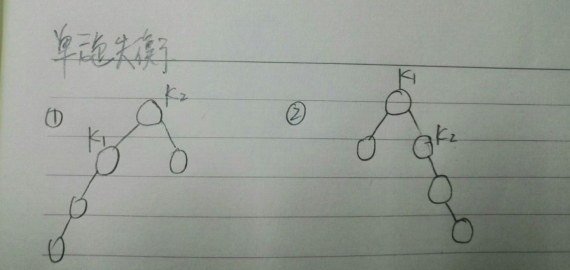 单旋失衡
① K2
K1
② K1
K2